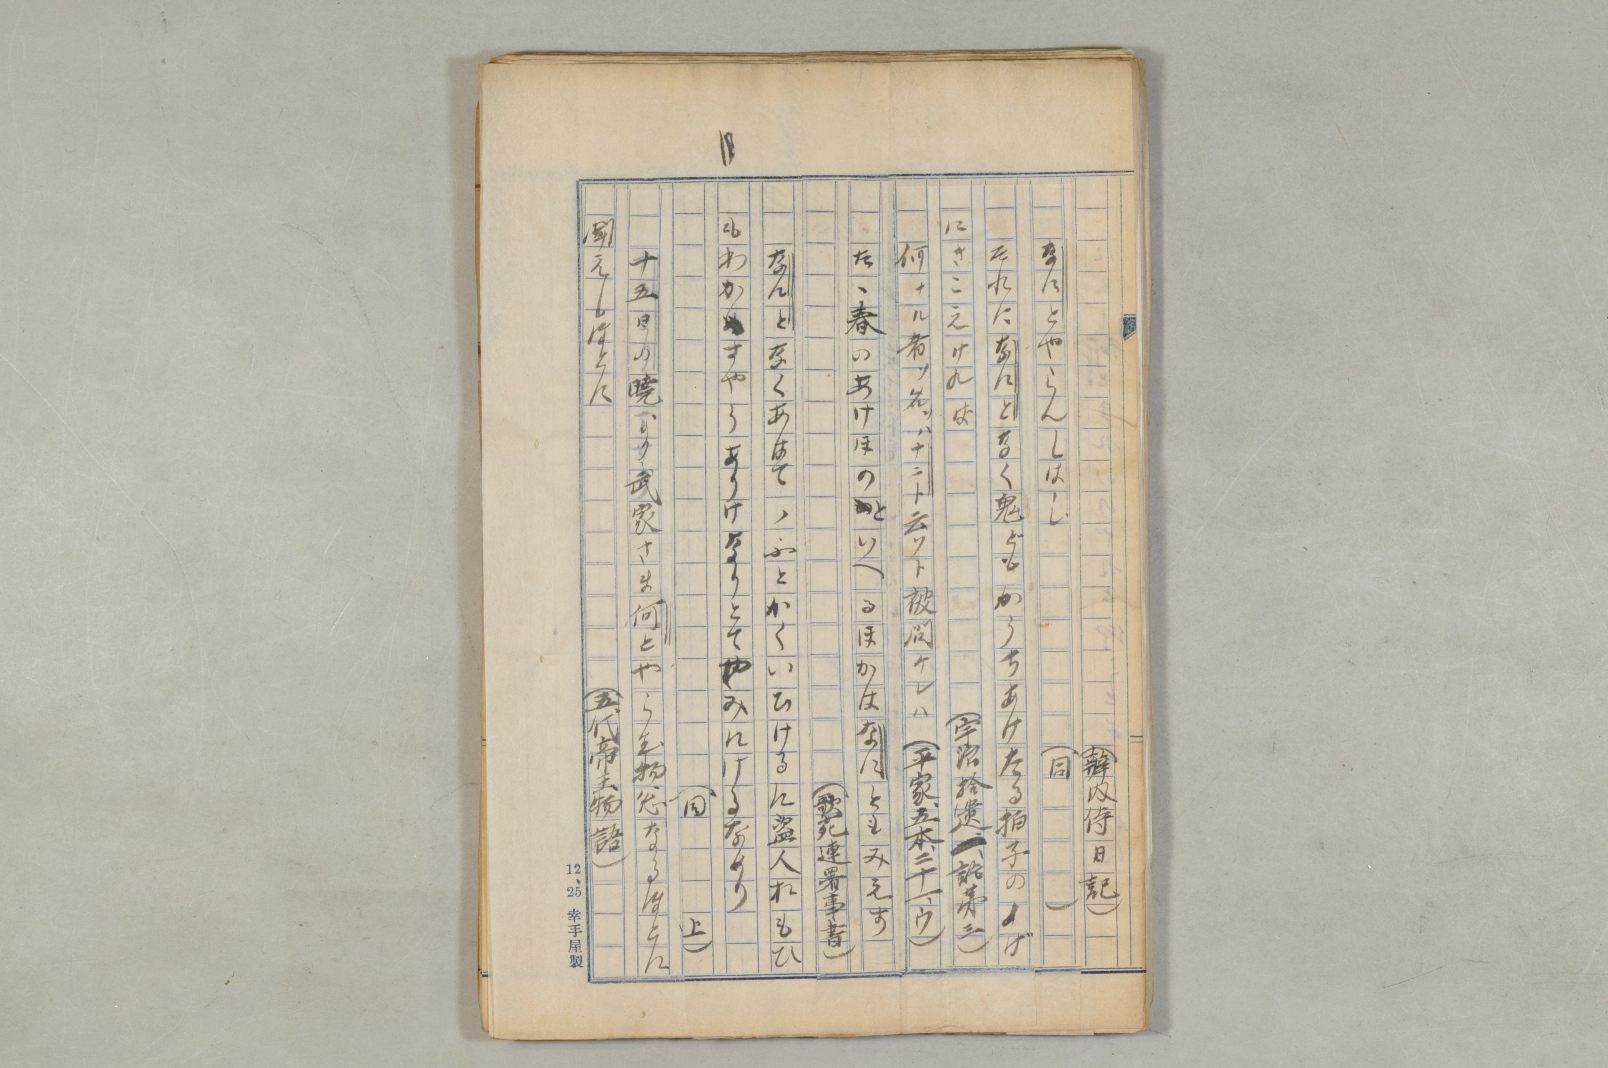 (辨内侍日記)
なにとやらんしはし　(同　　)
それになにとなく鬼ともかうちあけたる拍子のよげ
にきこえけれは　(宇治拾遺一、話第三)
何ナル者ソ名ヲハナニト云ソト被問ケレハ　(平家、五本、二十一、ウ)
たゝ春のあけほのといへるほかはなにともみえす
(歌苑連署事書)
なにとなくあはてゝふとかくいひけるに盗人おもひ
もわかすやうありけなりとてやみにけるなめり
(同　　上)
十五日の曉より武家さま何とやらん物忩なるほとに
聞えしほとに　(五代帝王物語)
12、25 幸手屋製